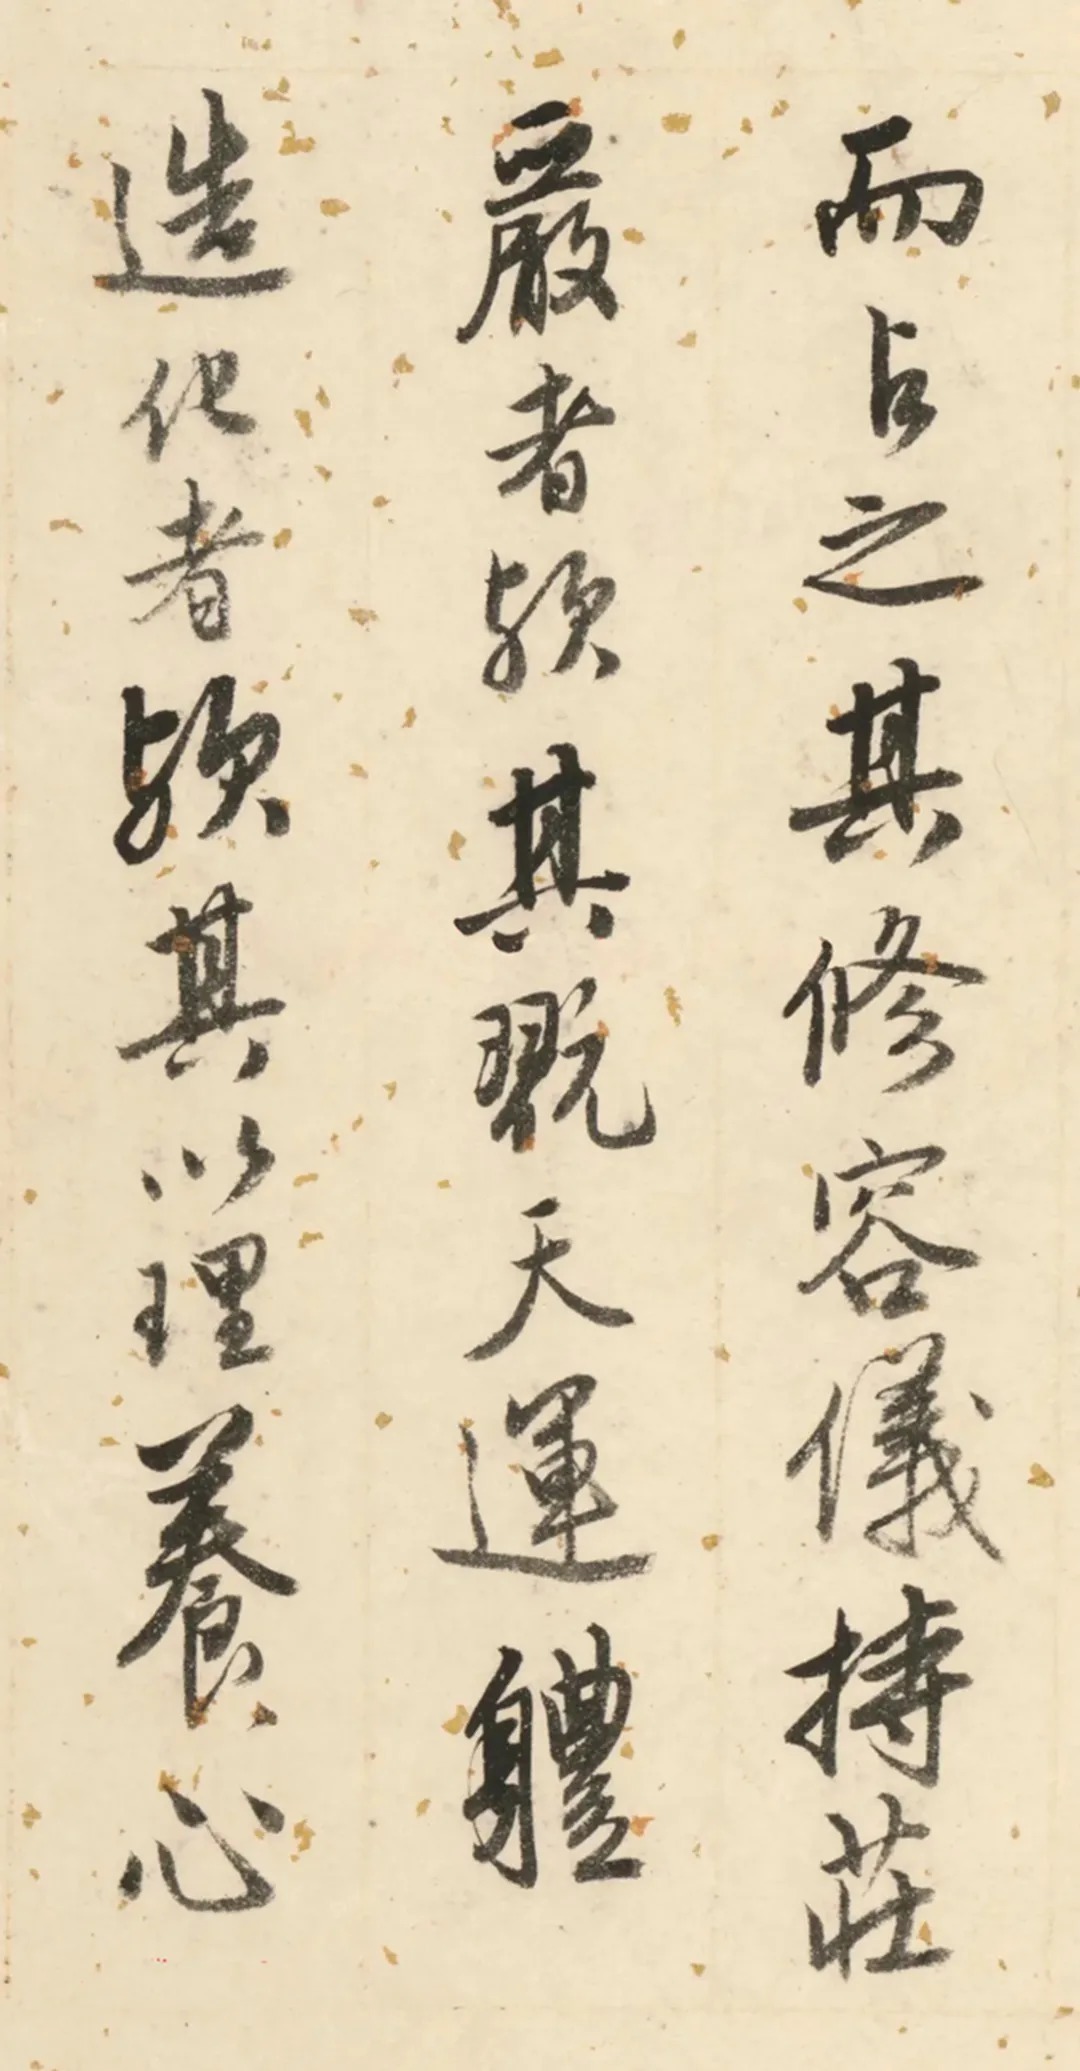 而占之其修容儀持莊
嚴者欤其翫天運體
造化者欤其以理養心